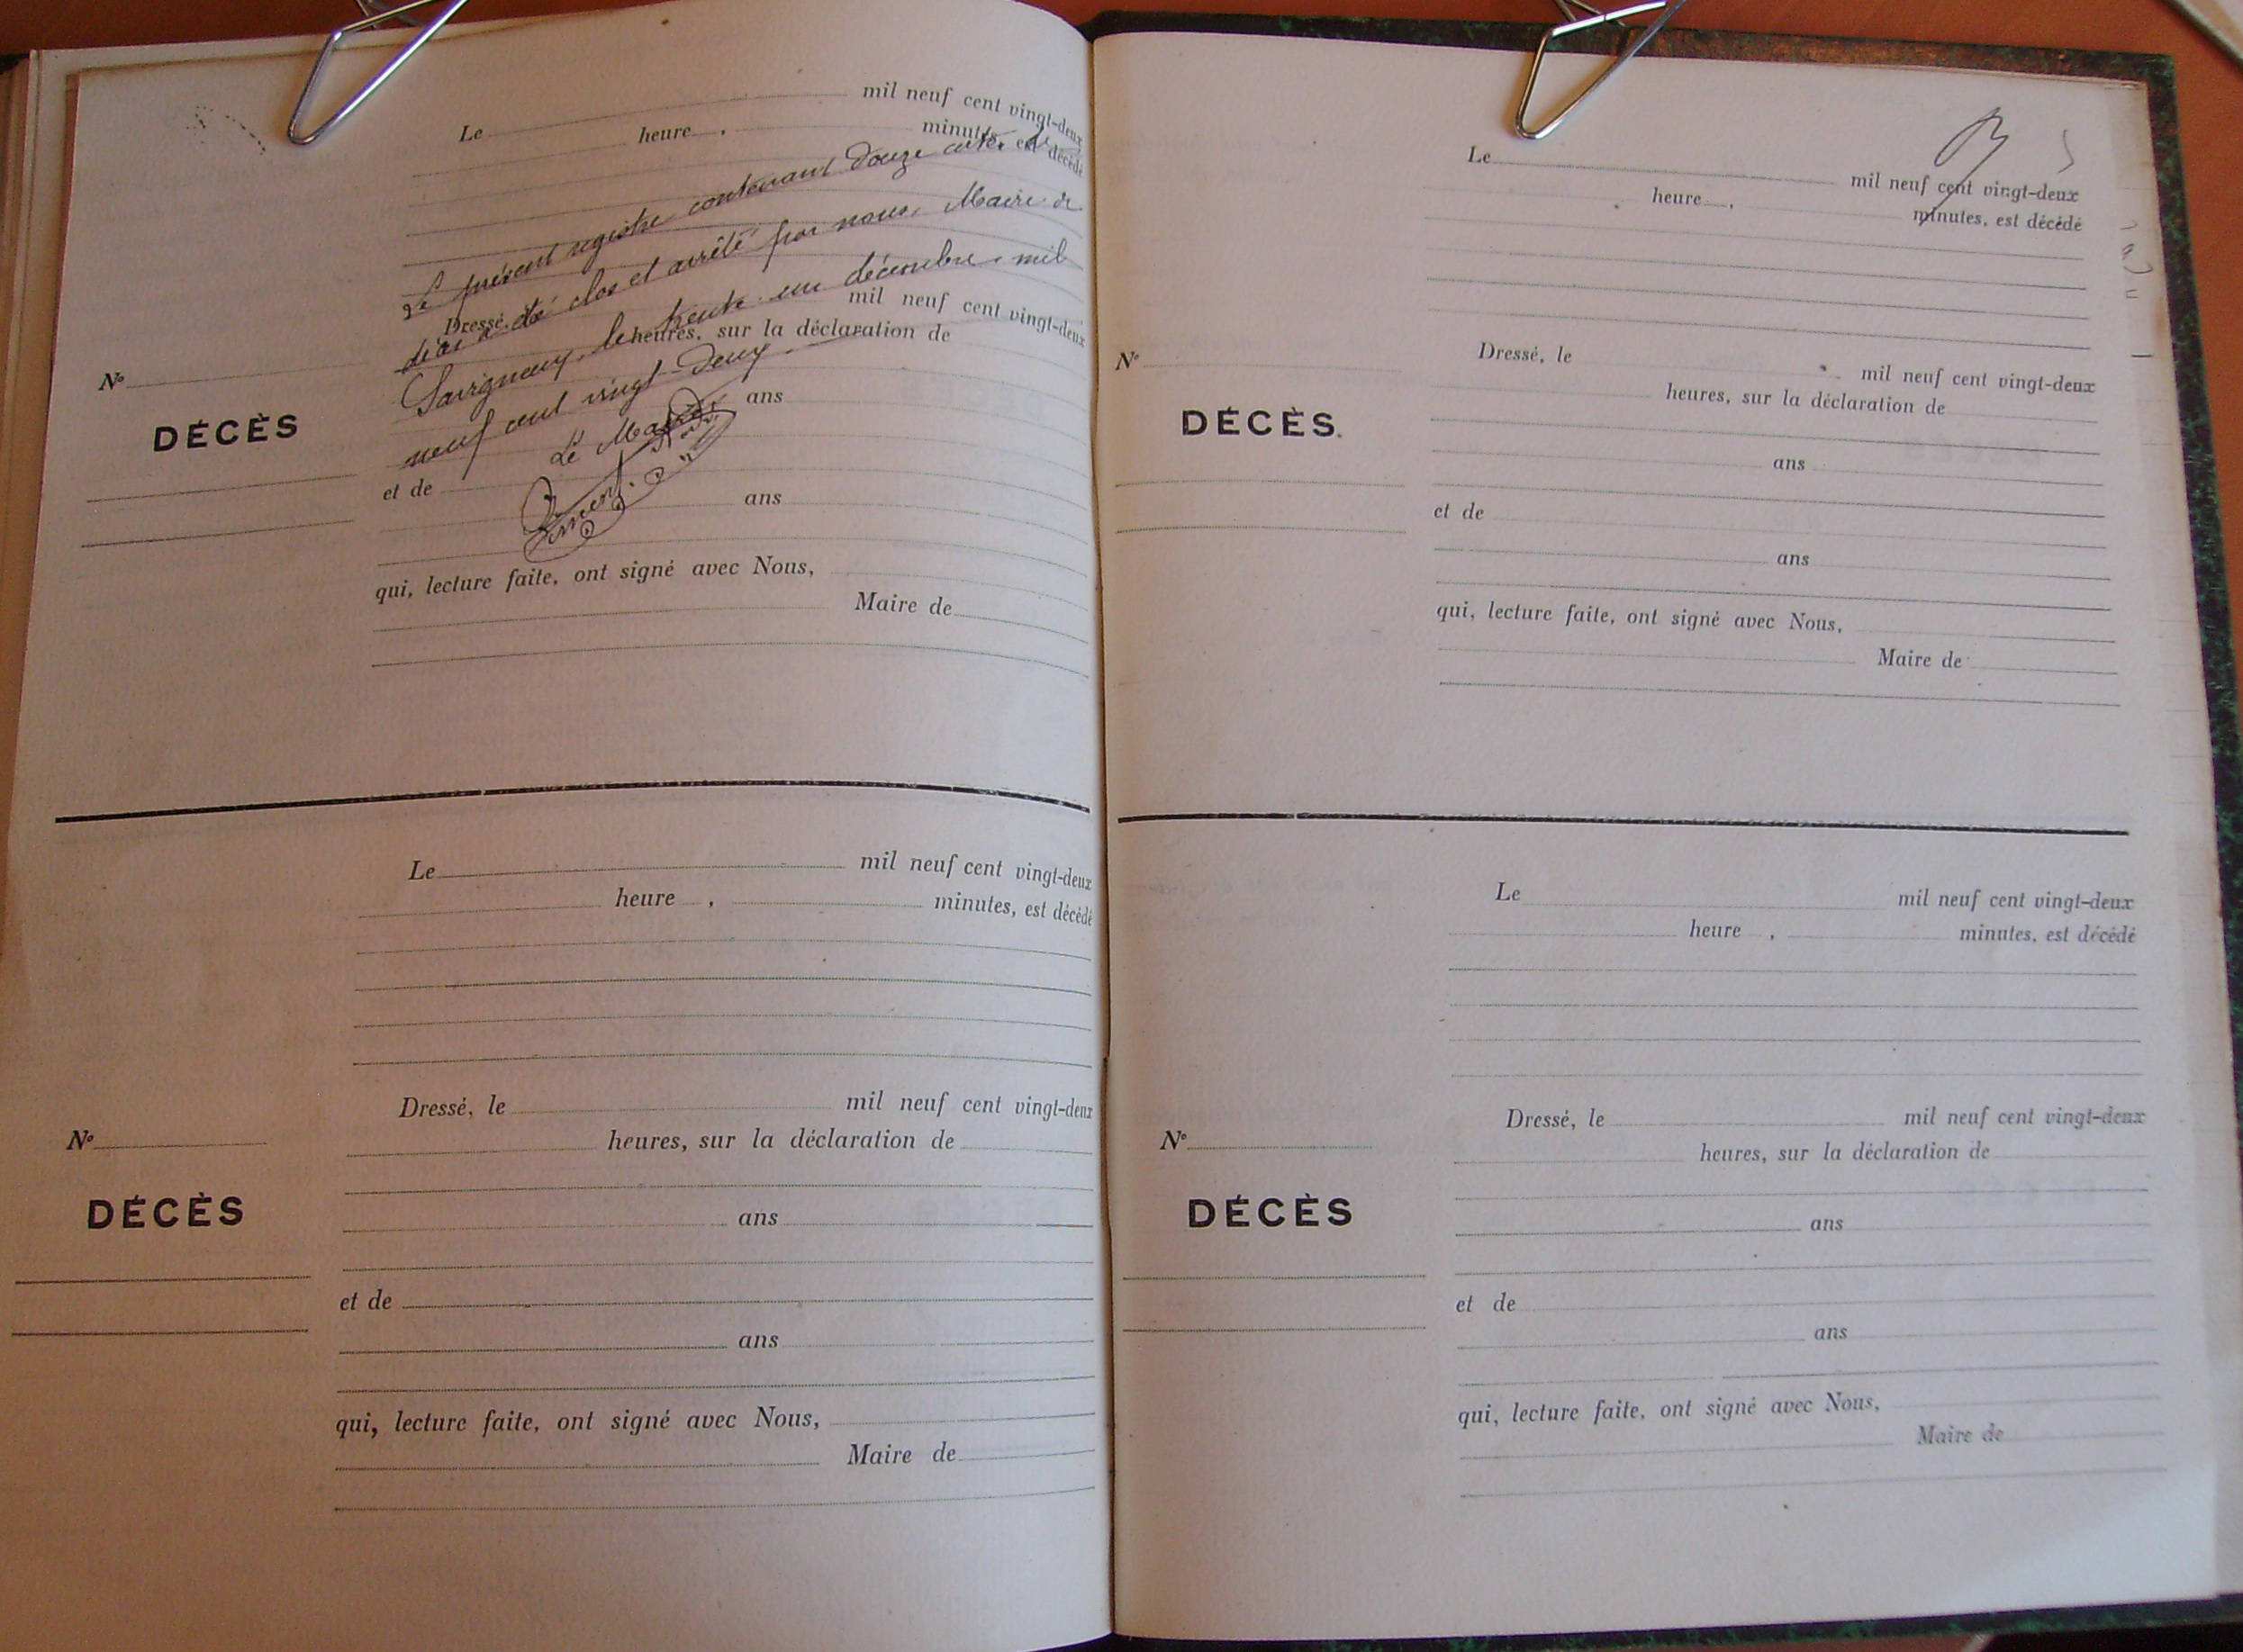 Le mil neuf cent vingt-deux
heure , minutes, est décédé
Le présent registre contenant douze actes de
décès a été clos et arrêté par nous, Maire de
Savigneux, le trente un décembre, mil
neuf cent vingt-deux.
Le Maire
Dressé, mil neuf cent vingt-deux
heures, sur la déclaration de
ans
Nº
DÉCÈS
et de
ans
qui, lecture faite, ont signé avec Nous,
Maire de
Le mil neuf cent vingt-deux
heure , minutes, est décédé
Dressé, le mil neuf cent vingt-deux
Nº heures, sur la déclaration de
DÉCÈS
ans
et de
ans
qui, lecture faite, ont signé avec Nous,
Maire de
Le mil neuf cent vingt-deux
heure , minutes, est décédé
Dressé, le mil neuf cent vingt-deux
Nº
heures, sur la déclaration de
DÉCÈS
ans
et de
ans
qui, lecture faite, ont signé avec Nous,
Maire de
Le mil neuf cent vingt-deux
heure , minutes, est décédé
Dressé, le mil neuf cent vingt-deux
Nº heures, sur la déclaration de
DÉCÈS
ans
et de
ans
qui, lecture faite, ont signé avec Nous,
Maire de